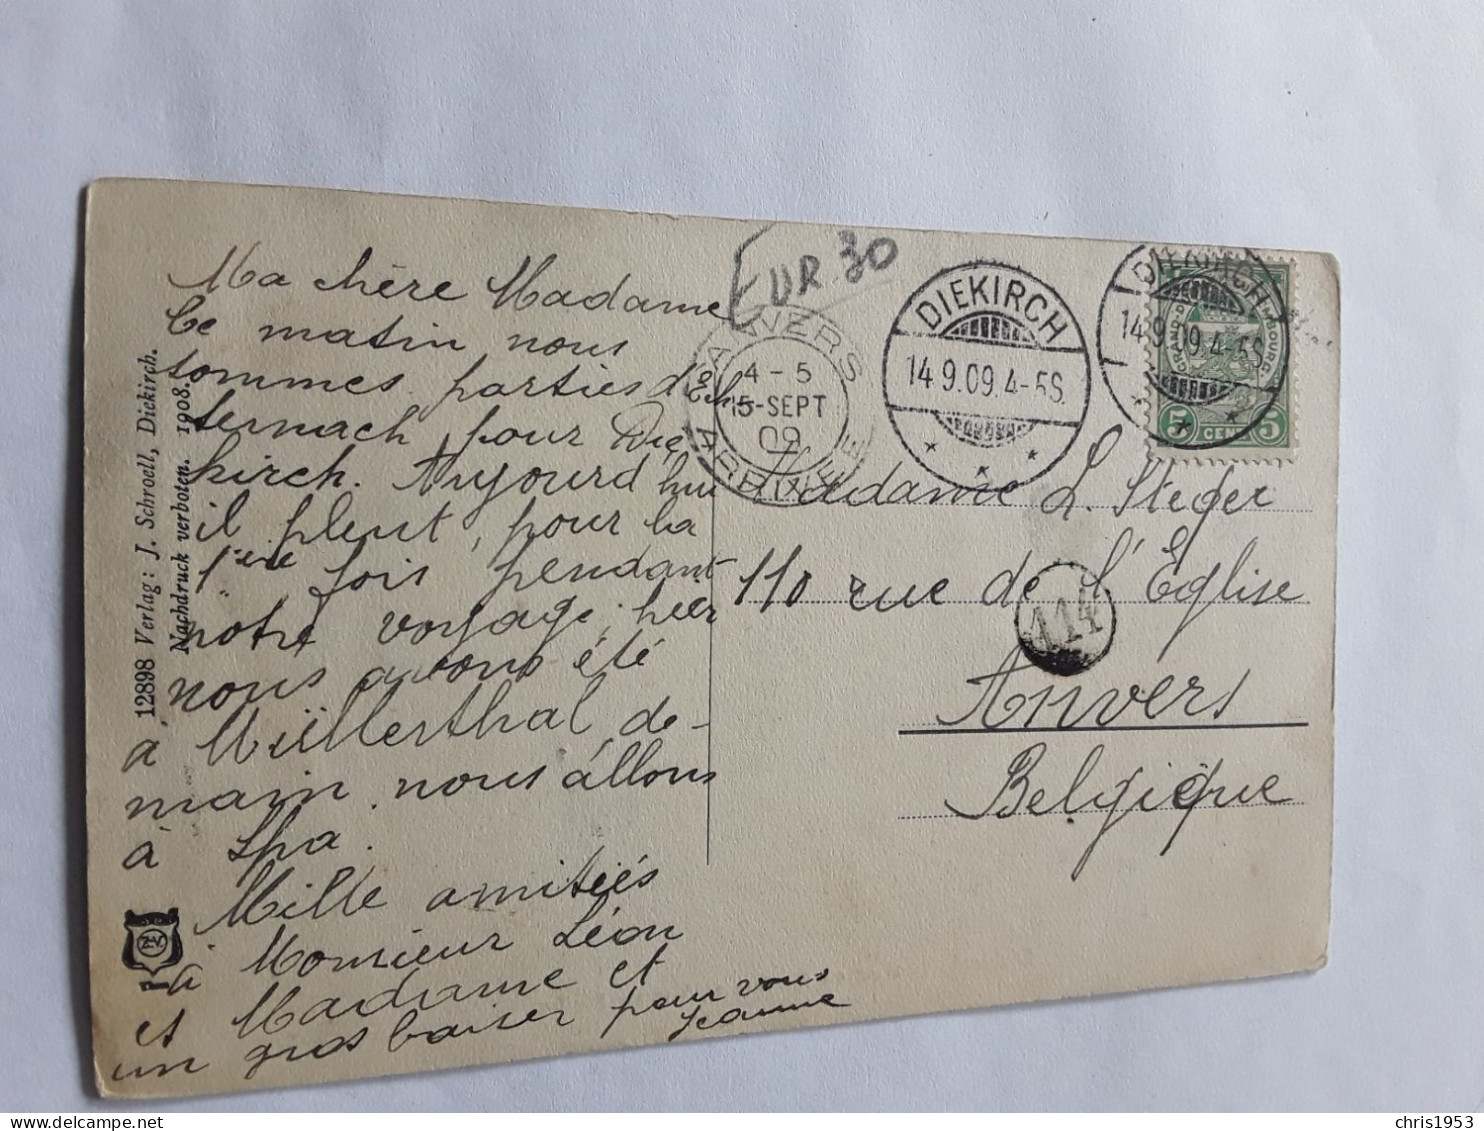 Ma chère Madame
Ce matin nous
sommes parties d'Ech-
ternach pour Die,
kirch. Aujourd hui
il pleut, pour la
1ère fois pendant
notre voyage, hier
nous avons été
à Müllerthal, de-
main nous allons
à Spa.
Mille amitiés
à Monsieur Léon
et Madame et
un gros baiser pour vous
Jeanne
12898 Verlag: J. Schroell, Diekirch.
Nachdruck verboten. 1908.
EUR. 30
ANVERS
4-5
15-SEPT
09
ARRIVEE
DIEKIRCH
14.9.09.4-5S.
DIEKIRCH
14.9.09.4-5S.
GRAND-D
MBOURG
5 CENT 5
Madame L. Steger
110 rue de l'Église
114
Anvers
Belgique
chris1953